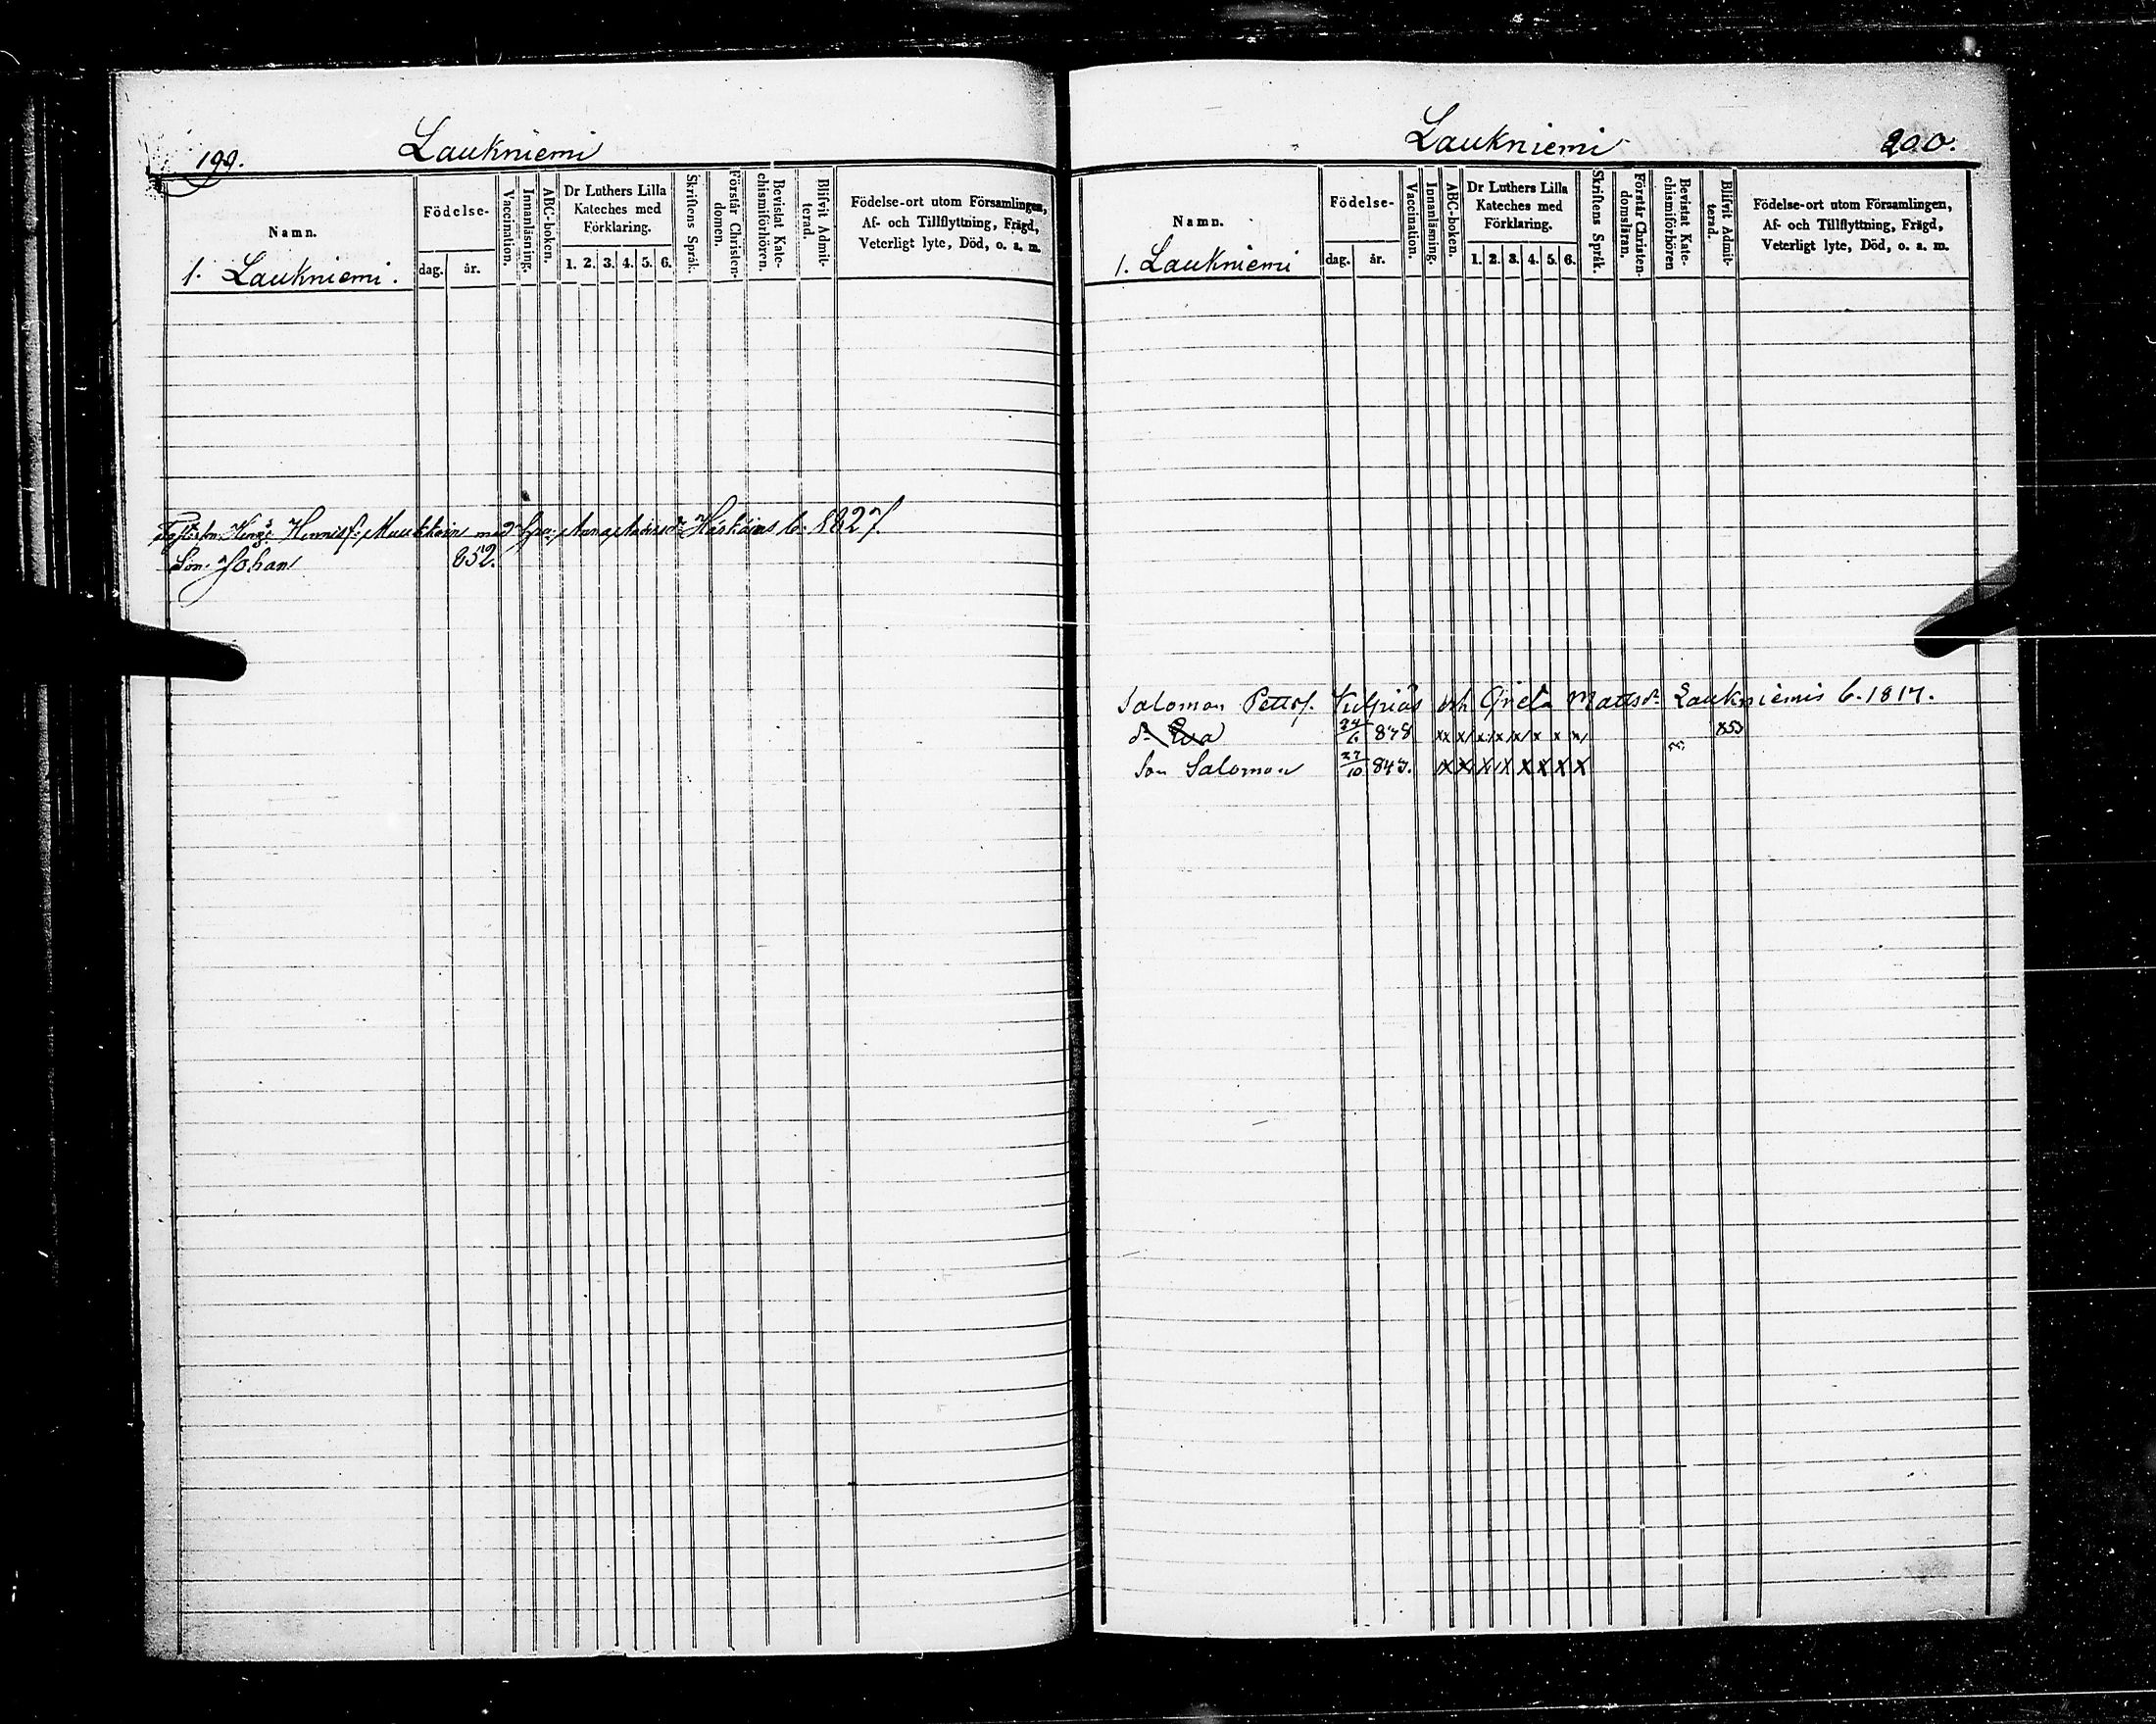 199.
Laukniemi
Namn.
Födelse-
dag. år.
Vaccination.
Innanläsning.
ABC-boken.
Dr Luthers Lilla
Kateches med
Förklaring.
1. 2. 3. 4. 5. 6.
Skriftens Språk.
Förstår Christen-
domen.
Bevistat Kate-
chismiförhören.
Blifvit Admit-
terad.
Födelse-ort utom Församlingen,
Af- och Tillflyttning, Frägd,
Veterligt lyte, Död, o. s. m.
1. Laukniemi.
Muukkoin med Anna 1827.
Son Johan 852.
Laukniemi
200.
Namn.
Födelse-
dag. år.
Vaccination.
Innanläsning.
ABC-boken.
Dr Luthers Lilla
Kateches med
Förklaring.
1. 2. 3. 4. 5. 6.
Skriftens Språk.
Förstår Christen-
domsläran.
Bevistat Kate-
chismiförhören
Blifvit Admit-
terad.
Födelse-ort utom Församlingen,
Af- och Tillflyttning, Frägd,
Veterligt lyte, Död, o. s. m.
1. Laukniemi
Salomon Pettsf. Vulpius och Greta Mattsdr Laukniemis b. 1817.
dr Eva 24/6 838 xx x x x x x x x 853
Son Salomon 27/10 843. X X X X X X X X